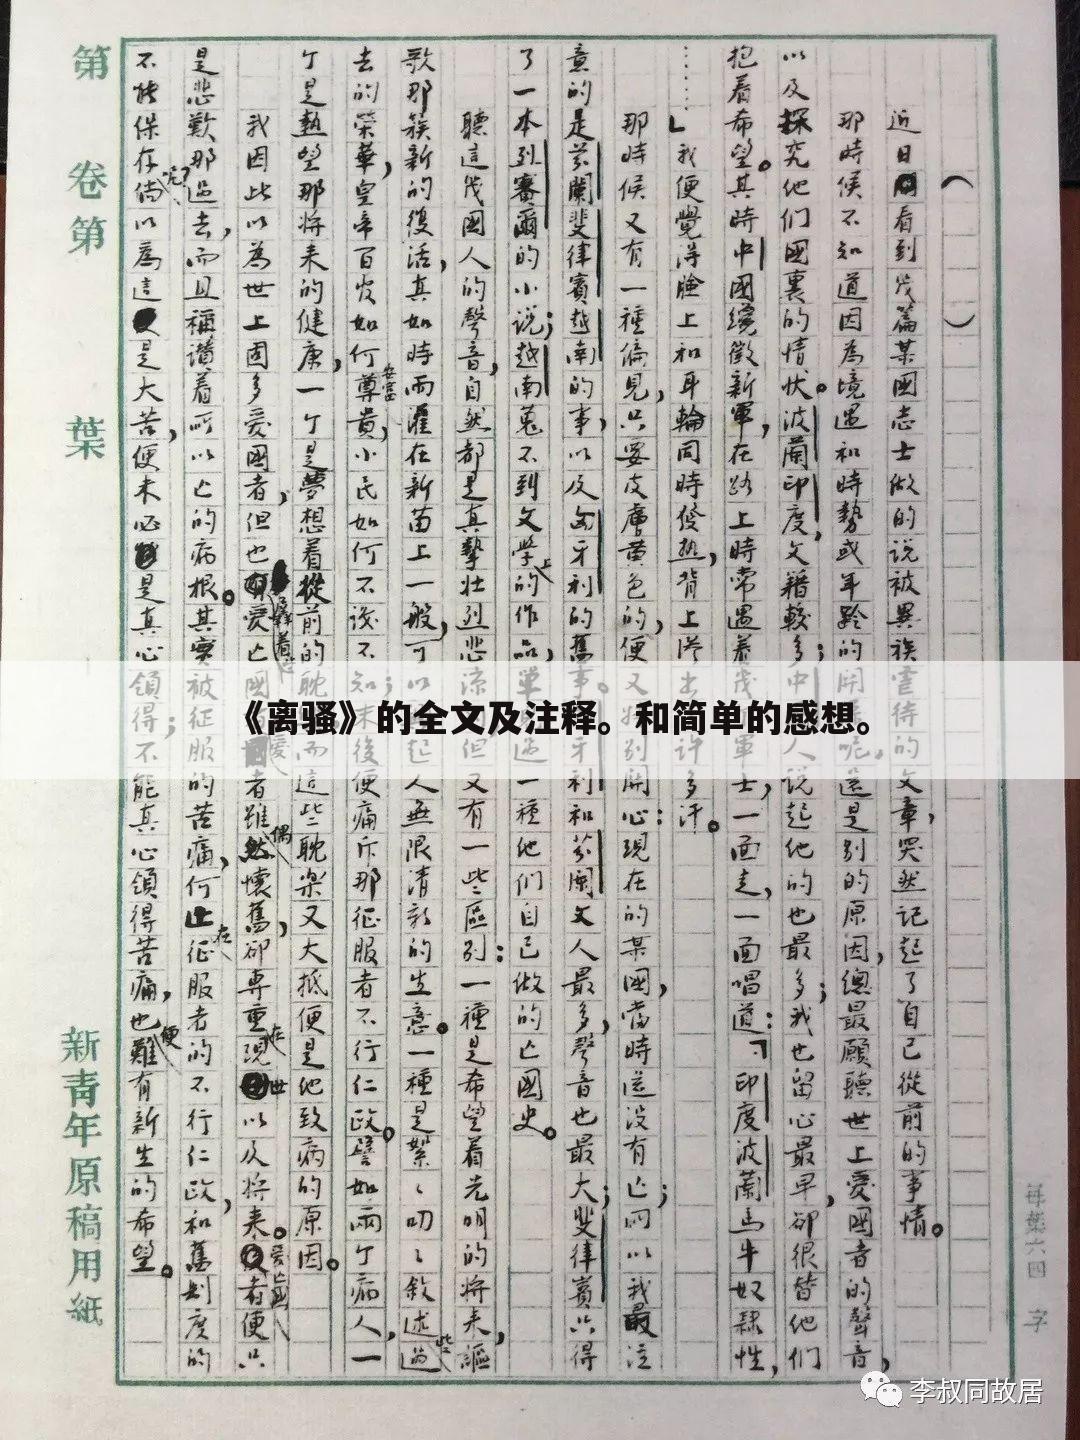 ( )
近日看到幾篇某國志士做的說被異族虐待的文章,突然記起了自己從前的事情。
那時候不知道因為境遇和時勢或年齡的關係呢,還是別的原因,總最願聽世上愛國者的聲音,
以及探究他們國裏的情狀。波蘭印度,文籍較多;中人說起他的也最多;我也留心最早,卻很替他們
抱着希望。其時中國纔徵新軍,在路上時常遇着幾軍士,一面走,一面唱道:「印度波蘭馬牛奴隸性,
……」我便覺得臉上和耳輪同時發熱,背上滲出許多汗。
那時候又有一種偏見,只要皮膚黃色的,便又特別關心:現在的某國,當時還沒有亡;所以我最注
意的是芬蘭斐律賓越南的事,以及匈牙利的舊事。牙利和芬蘭文人最多,聲音也最大;斐律賓只得
了一本列審爾的小说;越南蒐不到文學上的作品,單過一種他們自己做的亡國史。
聽這幾國人的聲音,自然都是真摯壯烈悲涼的;但又有一些區別:一種是希望着光明的將來,謳
歌那簇新的復活,真如時雨灌在新苗上一般,可以起人無限清新的生意。一種是絮〻叨〻敘述些過
去的榮華,皇帝百官如何安富尊貴,小民如何不識不知;末後便痛斥那征服者不行仁政。譬如兩个病人,一
个是熱望那將来的健康,一个是夢想着從前的耽而這些耽樂又大抵便是他致病的原因。
我因此以為世上固多愛國者,但也羼着些愛亡國者雖偶然懷舊,卻專重在現世以及將来。愛亡國者便只
是悲歎那過去,而且稱讚着所以亡的病根。其實被征服的苦痛,何止在征服者的不行仁政,和舊制度的
不能保存以為這是大苦,便未必是真心領得;不能真心領得苦痛,也便難有新生的希望。
第 卷第 葉
新青年原稿用紙
每葉六四 字
《离骚》的全文及注释。和简单的感想。
李叔同故居